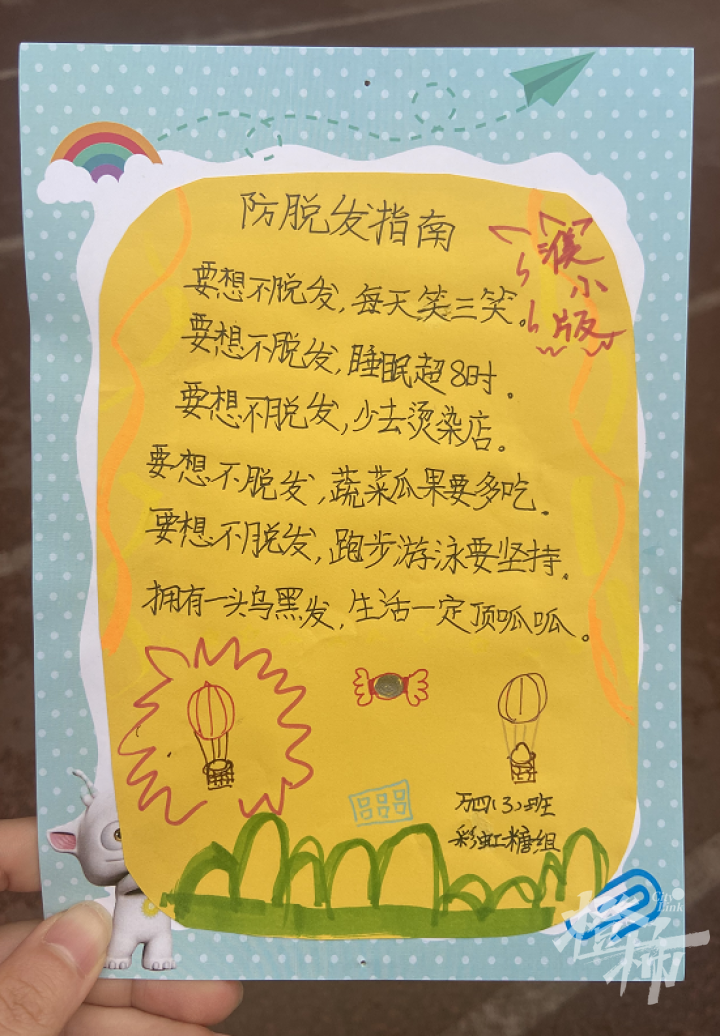 防脱发指南
濮小版
要想不脱发，每天笑三笑。
要想不脱发，睡眠超8时。
要想不脱发，少去烫染店。
要想不脱发，蔬菜瓜果要多吃。
要想不脱发，跑步游泳要坚持。
拥有一头乌黑发，生活一定顶呱呱。
四（3）班
彩虹糖组
City Link
橙柿